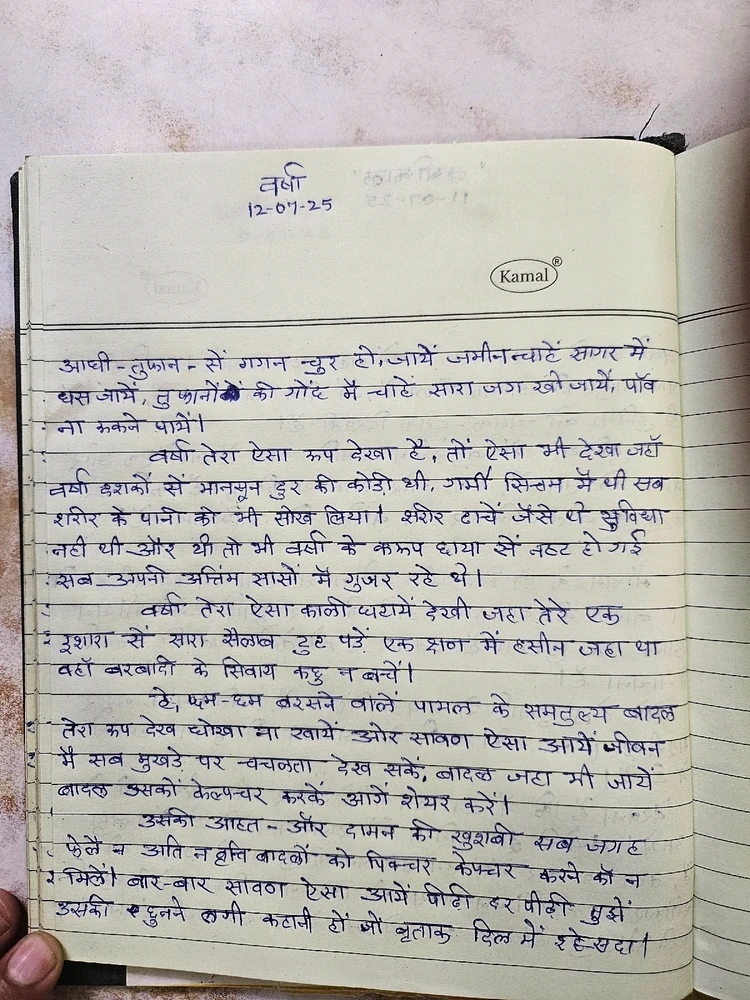 वर्षा
12-07-25
Kamal®
आधी-तुफान-सें गगन चुर हो, जायें जमीन चाहें सागर में
धस जायें, तुफानों की गोंद मैं चाहें सारा जग खों जायें, पाँव
ना रूकने पायें।
वर्षा तेरा ऐसा रूप देखा है, तों ऐसा भी देखा जहाँ
वर्षा दशकों सें मानसून दुर की कोडी थी, गर्मी सित्तम मैं थी सब
शरीर के पानी को भी सोख लिया। शरीर ढाचें जैंसे थे सुविधा
नही थी और थी तो भी वर्षा के करूप छाया सें नष्ट हो गई
सब अपनी अन्तिम सासों मैं गुजर रहे थे।
वर्षा तेरा ऐसा काली घटायें देखी जहा तेरे एक
इशारा सें सारा सैलाब टुट पडें एक क्षण में हसीन जहा था
वहाँ बरबादी के सिवाय कछु न बचें।
हे, छम-छम बरसने वालें पामल के समतुल्य बादल
तेरा रूप देख धोखा ना खायें ओर सावण ऐसा आयें जीवन
मै सब मुखडे पर चचलता देख सकें, बादल जहा भी जायें
बादल उसकों केल्पचर करकें आगें शेयर करें।
उसकी आहत-और दामन की खुशबी सब जगह
फेलें न अति न वृत्ति बादलों को पिक्चर केप्चर करने कों न
मिलें। बार-बार सावण ऐसा आयें पीढी दर पीढी मुझें
उसकी धुनने लगी कहानी हों जों दिल में रहे सदा।